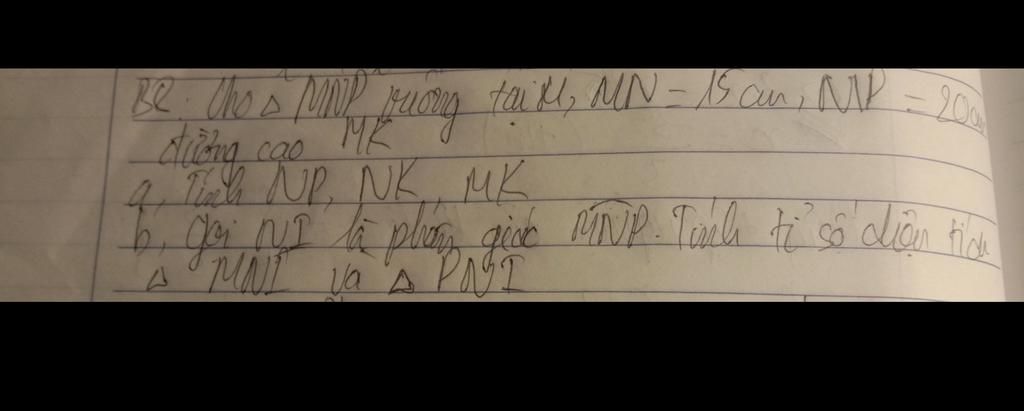 B2. Cho Δ MNP vuông tại M, MN = 15cm, NP = 20cm
đường cao MK
a, Tính NP, NK, MK
b, gọi NI là phân giác MNP. Tính tỉ số diện tích
Δ MNI và Δ PNI